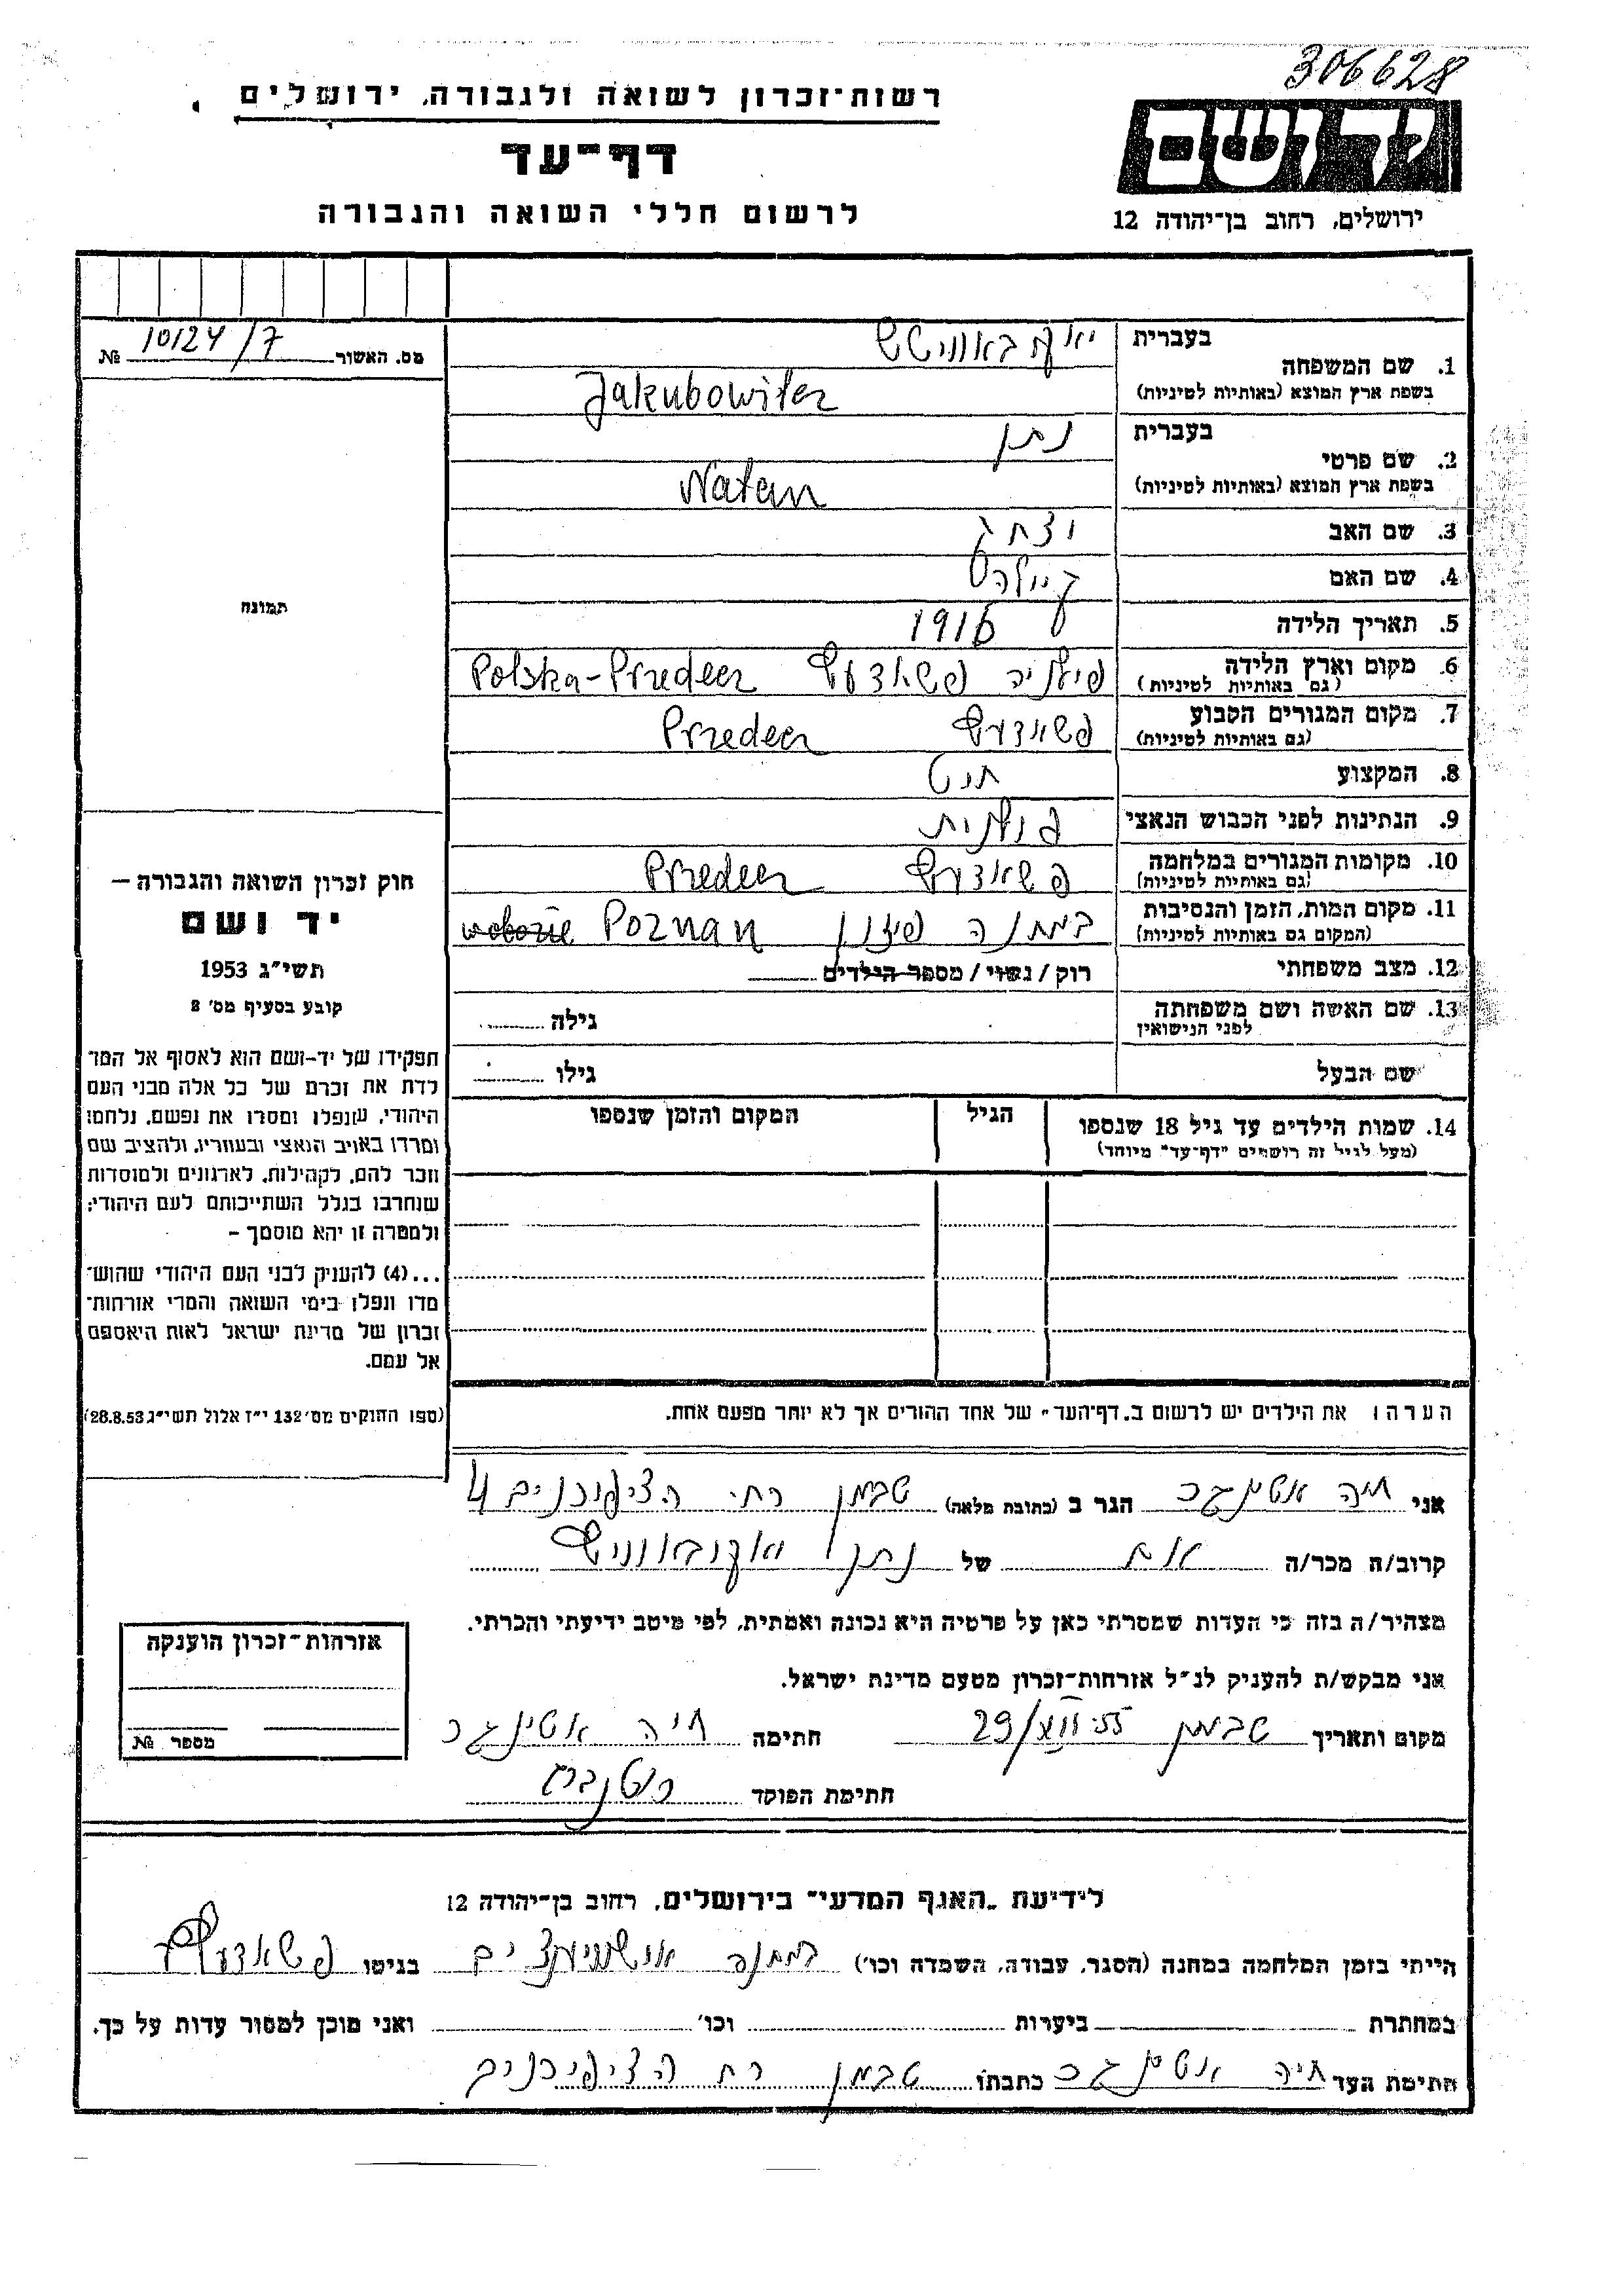 306628
רשות־זכרון לשואה ולגבורה, ירושלים
יד ושם
דף־עד
לרשום חללי השואה והגבורה
ירושלים, רחוב בן־יהודה 12
מס. האשור 10124/7 №
1. שם המשפחה בעברית
בשפת ארץ המוצא (באותיות לטיניות) Jakubowitcz
2. שם פרטי בעברית נתן
בשפת ארץ המוצא (באותיות לטיניות) Natan
3. שם האב
4. שם האם
5. תאריך הלידה 1916
6. מקום וארץ הלידה Polska-Przdecz
(גם באותיות לטיניות)
7. מקום המגורים הקבוע Przedecz
(גם באותיות לטיניות)
8. המקצוע
9. הנתינות לפני הכבוש הנאצי פולנית
10. מקומות המגורים במלחמה Przedecz
(גם באותיות לטיניות)
11. מקום המות, הזמן והנסיבות במחנה פוזנן Poznan
(המקום גם באותיות לטיניות)
12. מצב משפחתי רוק / נשוי / מספר הילדים
13. שם האשה ושם משפחתה גילה
לפני הנישואין
שם הבעל גילו
14. שמות הילדים עד גיל 18 שנספו הגיל המקום והזמן שנספו
(מעל לגיל זה רושמים "דף־עד" מיוחד)
הערה: את הילדים יש לרשום ב„דף־העד" של אחד ההורים אך לא יותר מפעם אחת.
תמונה
חוק זכרון השואה והגבורה —
יד ושם
תשי"ג 1953
קובע בסעיף מס' 2
תפקידו של יד-ושם הוא לאסוף אל המו־
לדת את זכרם של כל אלה מבני העם
היהודי, שנפלו ומסרו את נפשם, נלחמו
ומרדו באויב הנאצי ובעוזריו, ולהציב שם
וזכר להם, לקהילות, לארגונים ולמוסדות
שנחרבו בגלל השתייכותם לעם היהודי;
ולמטרה זו יהא מוסמך –
...(4) להעניק לבני העם היהודי שהוש־
מדו ונפלו בימי השואה והמרי אזרחות־
זכרון של מדינת ישראל לאות היאספם
אל עמם.
(ספר החוקים מס' 132 י"ז אלול תשי"ג 28.8.53)
אני חיה הגר ב (כתובת מלאה) רח. 4
קרוב/ה מכר/ה אם של נתן
מצהיר/ה בזה כי העדות שמסרתי כאן על פרטיה היא נכונה ואמתית, לפי מיטב ידיעתי והכרתי.
אני מבקש/ת להעניק לנ"ל אזרחות־זכרון מטעם מדינת ישראל.
מקום ותאריך 29/XII.55 חתימה חיה
חתימת הפוקד
אזרחות־זכרון הוענקה
מספר №
לידיעת „האגף המדעי" בירושלים, רחוב בן־יהודה 12
הייתי בזמן המלחמה במחנה (הסגר, עבודה, השמדה וכו') במחנה בגיטו
במחתרת ביערות וכו' ואני מוכן למסור עדות על כך.
חתימת העד חיה כתבתו רח